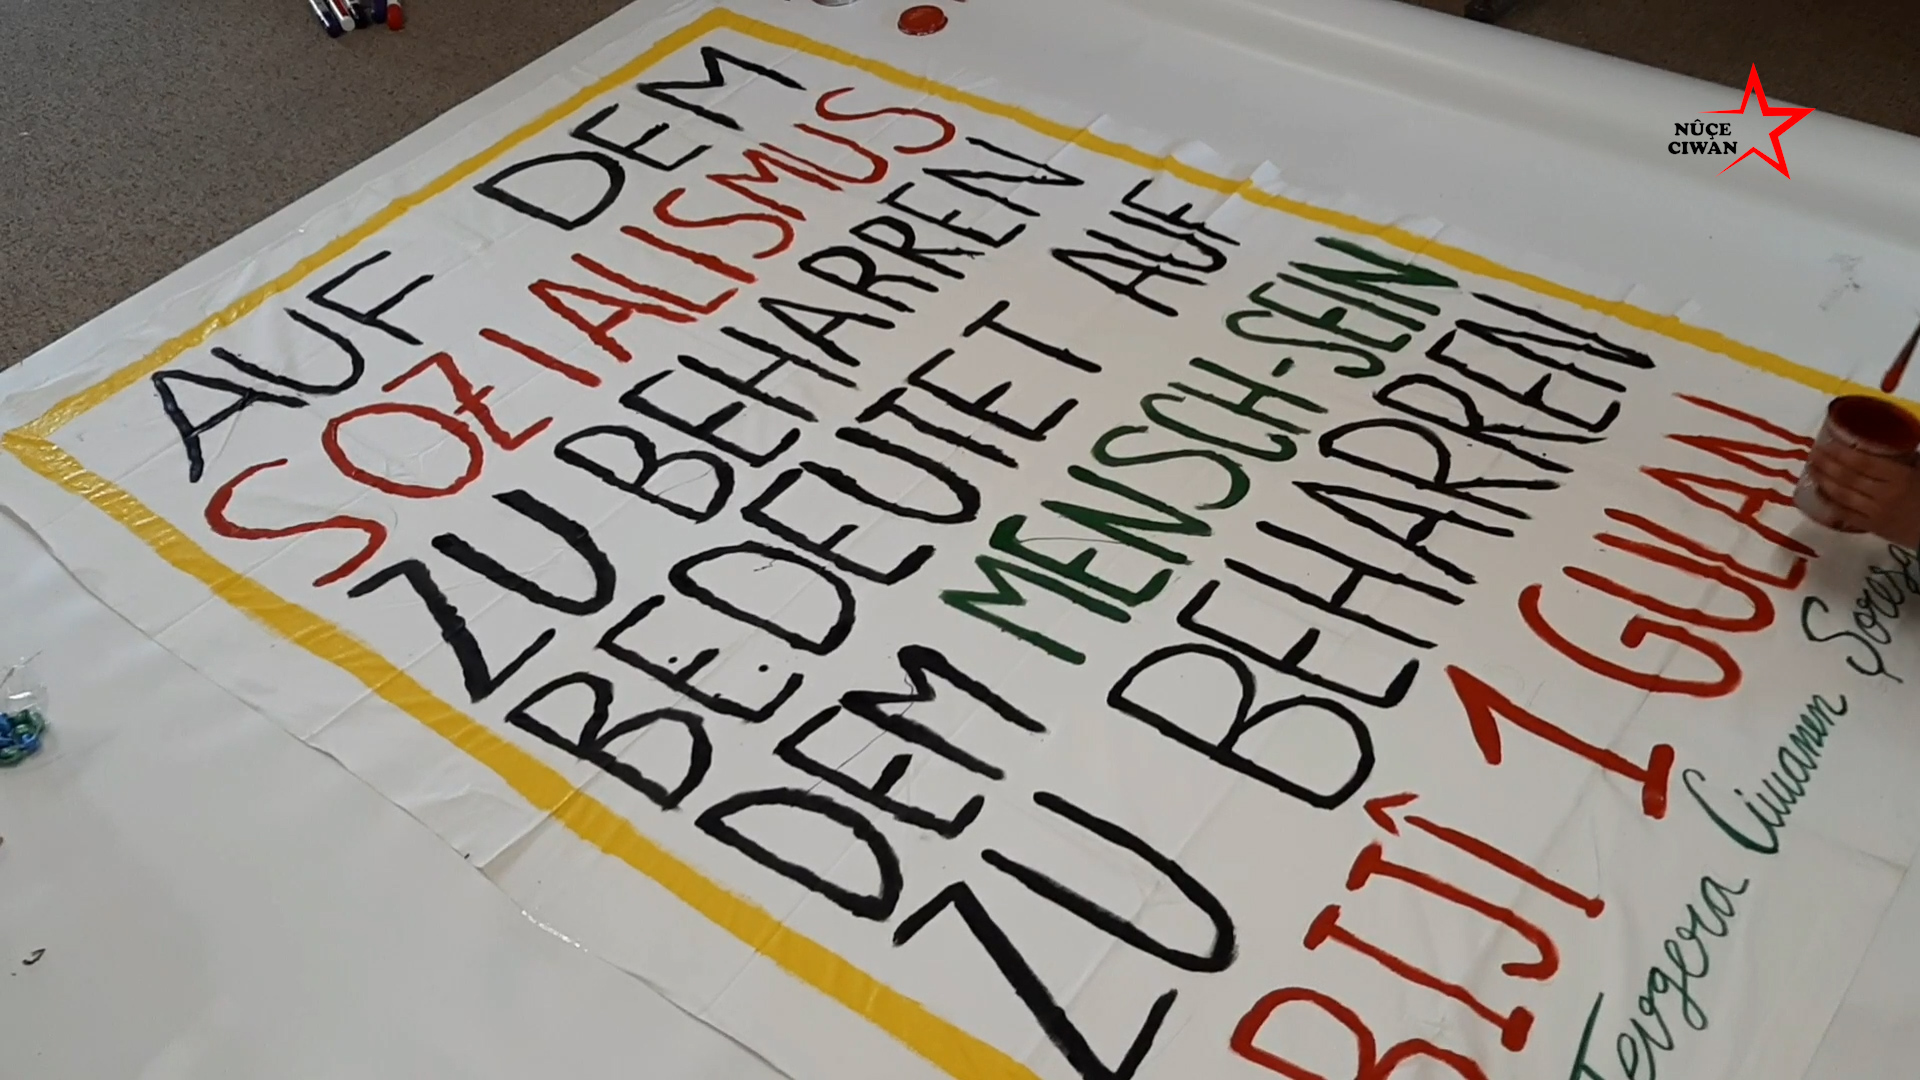 AUF DEM
SOZIALISMUS
ZU BEHARREN
BEDEUTET AUF
DEM MENSCH-SEIN
ZU BEHARREN
BIJÎ 1 GULAN
Tevgera Ciwanen Şoreşg
NÛÇE
CIWAN